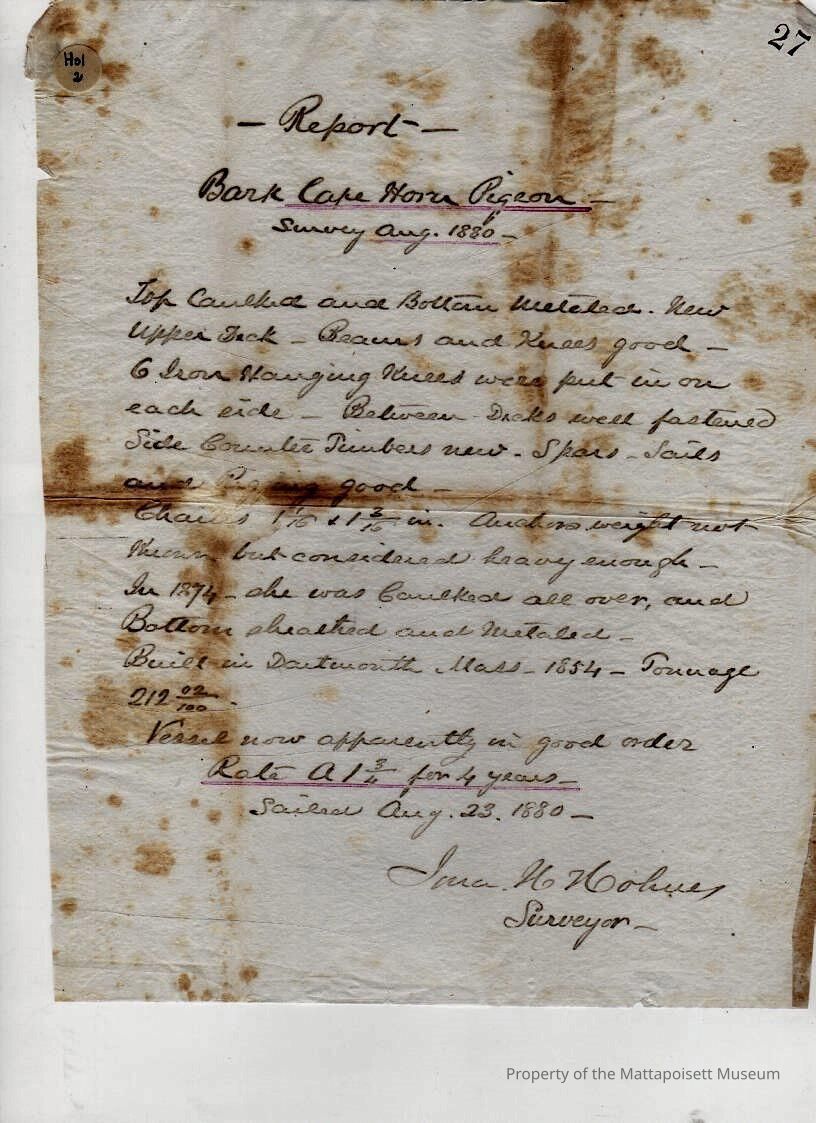 27
Hol
2
- Report -
Bark Cape Horn Pigeon -
Survey Aug. 1880 -
Top Caulked and Bottom Metaled. New
Upper Deck - Beams and Knees good -
6 Iron Hanging Knees were put in on
each side - Between Decks well fastened
Side Counter Timbers new - Spars - Sails
and Rigging good -
Chains 1 1/16 & 1 3/16 in. Anchors weight not
Known but considered heavy enough -
In 1874 - she was Caulked all over, and
Bottom sheathed and Metaled -
Built in Dartmouth Mass - 1854 - Tonnage
212 02/100 -
Vessel now apparently in good order
Rate A 1 3/4 for 4 years -
Sailed Aug. 23. 1880 -
H Holmes
Surveyor -
Property of the Mattapoisett Museum